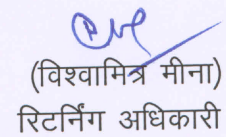 (विश्वामित्र मीना)
रिटर्निंग अधिकारी